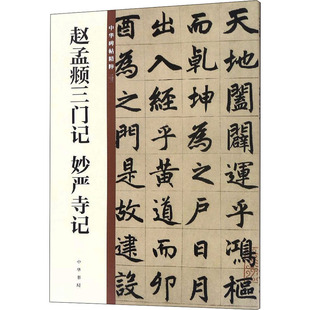 中华碑帖精粹
赵孟頫三门记 妙严寺记
中华书局
天地闔闢運乎鴻樞
而乾坤為之戶日月
出入經乎黃道而卯
酉為之門是故建設